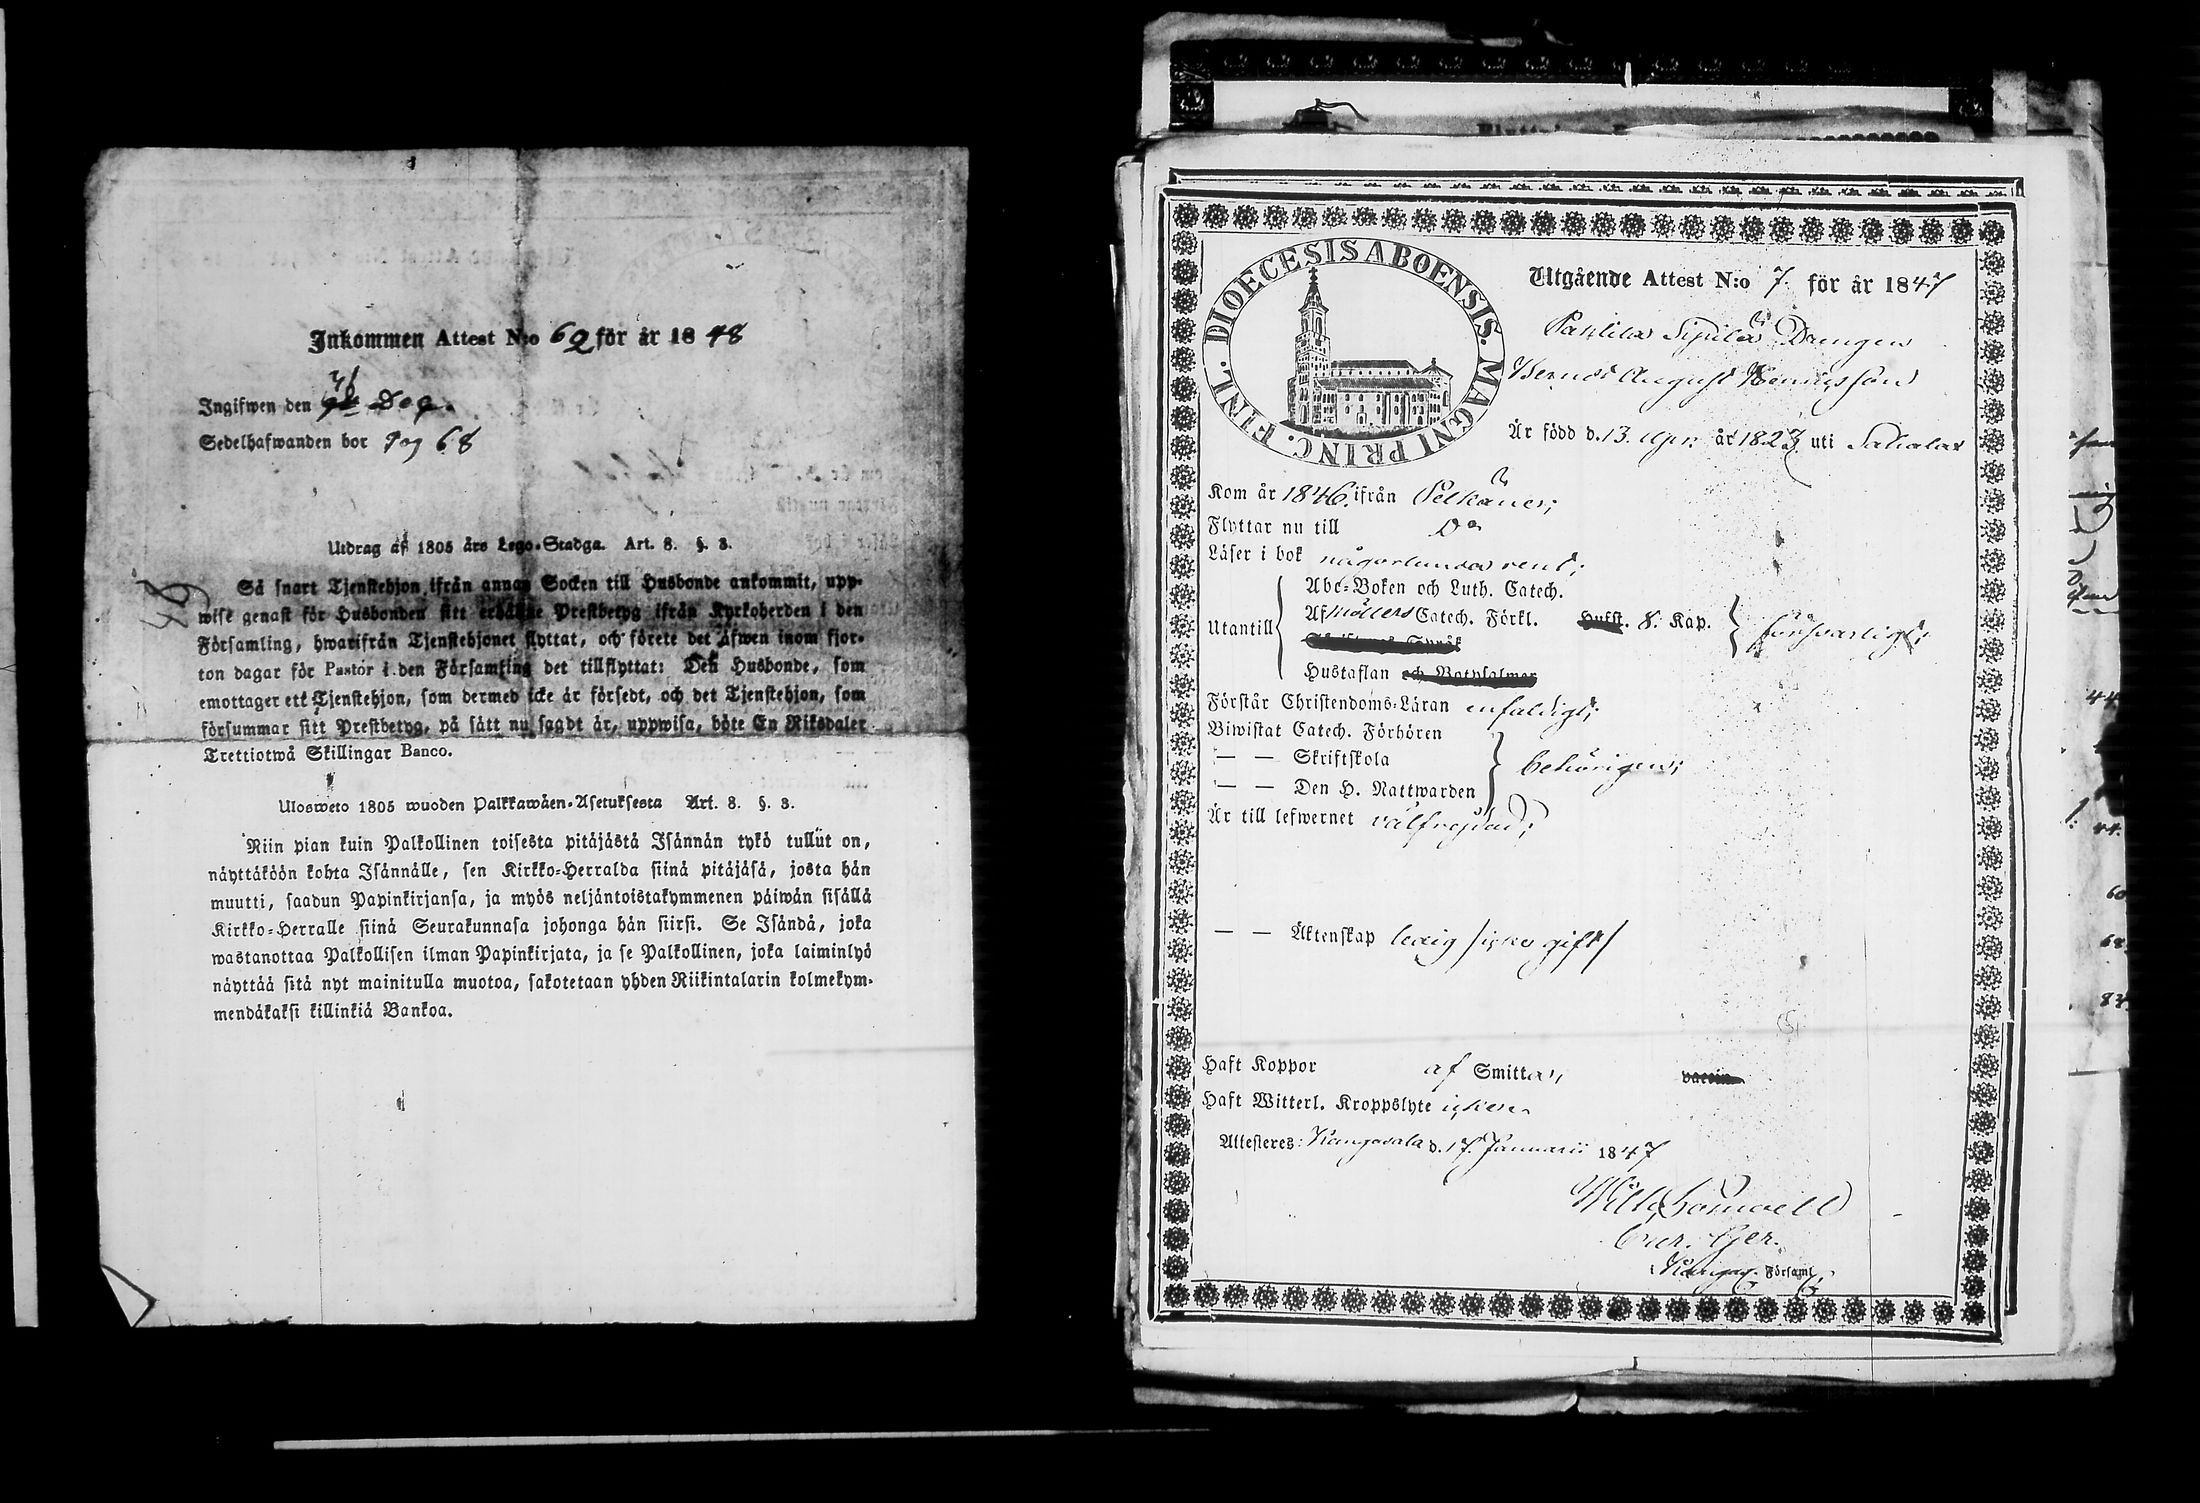 Inkommen Attest N:o 62 för år 1848
Ingifwen den Dec.
Sedelhafwanden bor pag 68
48
Utdrag af 1805 års Lego-Stadga. Art. 8. §. 3.
Så snart Tjenstehjon ifrån annan Socken till Husbonde ankommit, upp-
wise genast för Husbonden sitt erhållne Prestbetyg ifrån Kyrkoherden i den
Församling, hwarifrån Tjenstehjonet flyttat, och förete det äfwen inom fjor-
ton dagar för Pastor i den Församling det tillflyttat: Den Husbonde, som
emottager ett Tjenstehjon, som dermed icke är försedt, och det Tjenstehjon, som
försummar sitt Prestbetyg, på sätt nu sagdt är, uppwisa, böte En Riksdaler
Trettiotwå Skillingar Banco.
Ulosweto 1805 wuoden Palkkawäen-Asetuksesta Art. 8. §. 3.
Niin pian kuin Palkollinen toisesta pitäjästä Isännän tykö tullut on,
näyttäköön kohta Isännälle, sen Kirkko-Herralda siinä pitäjäsä, josta hän
muutti, saadun Papinkirjansa, ja myös neljäntoistakymmenen päiwän sisällä
Kirkko-Herralle siinä Seurakunnasa johonga hän siirsi. Se Isändä, joka
wastanottaa Palkollisen ilman Papinkirjata, ja se Palkollinen, joka laiminlyö
näyttää sitä nyt mainitulla muotoa, sakotetaan yhden Riikintalarin kolmekym-
mendäkaksi killinkiä Bankoa.
DIOECESIS ABOENSIS. MAGNI PRINC. FINL.
Utgående Attest N:o 7. för år 1847
Sipilä Drengen
Berndt August Henricsson
Är född d. 13. Apr. år 1823 uti Sahalax
Kom år 1846. ifrån Pelkäne;
Flyttar nu till Do
Läser i bok någorlunda rent;
Utantill
Abc-Boken och Luth. Catech.
Af Möllers Catech. Förkl. Hufst. 8. Kap.
Skriftenes Språk
Hustaflan och Botpsalmer
försvarligt;
Förstår Christendoms-Läran enfaldigt;
Biwistat Catech. Förhören
— — Skriftskola
— — Den H. Nattwarden
behörigen;
Är till lefwernet välfrejdad;
— — Äktenskap ledig /icke gift/
Haft Koppor af Smittan, vaccin
Haft Witterl. Kroppslyte icke
Attesteras: Kangasala d. 17. Januarii 1847
Wilh.
i Kangas. Församl.